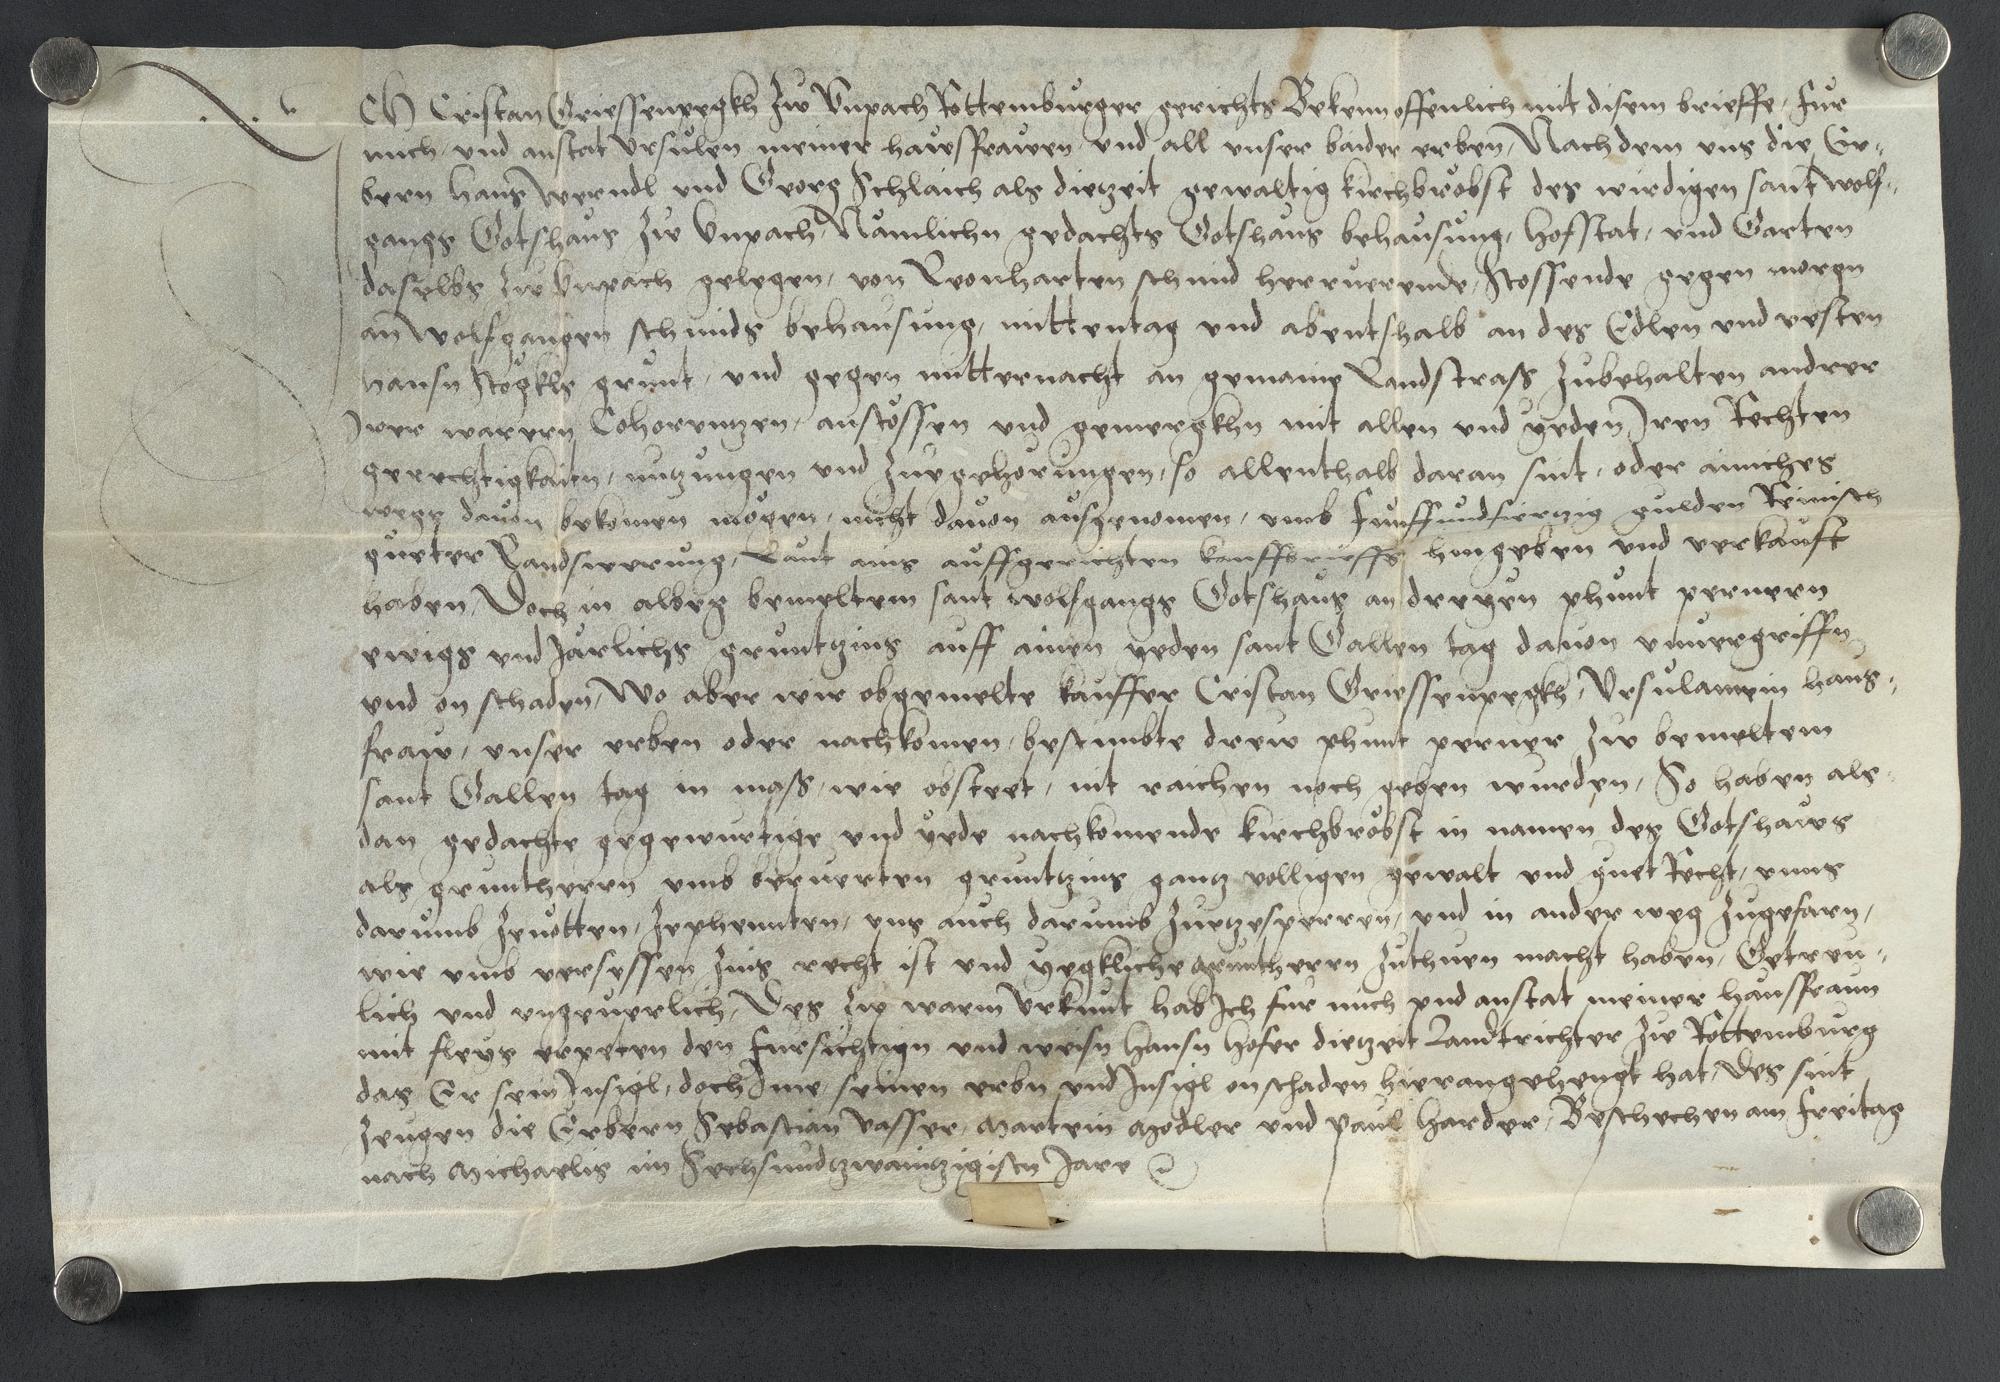 Ich Cristan Griessenpegkh zu Unpach Rottemburger gerichts Bekenn offenlich mit disem brieffe, fur
mich, und anstat Ursulen meiner hawsfrawen, und all unser baider erben, Nachdem uns die Er-
bern Hans Werndl und Georg Schlaich als dietzeit gewaltig kirchbröbst des wirdigen sant Wolf-
gangs Gotshaus zu Unpach, Nämlichn gedachts Gotshaus behausung, hofstat, und Garten
daselbs zu Unpach gelegen, von Leonharten schmid herruerende, Stossende gegen morgn
an Wolfgangen schmids behausung, mittentag und abentshalb an des Edlen und vesten
Hansn Stögkls grunt, und gegen mitternacht an gemaine Landstrass zubehalten andrer
Irer warern Coherentzen, anstössen und gemergkhn mit allen und yeden Iren Rechten
gerechtigkaitn, nutzungen und zuegehorungen, so allenthalb daran sint, oder ainiches
wegs davon bekömen mögen, nicht davon ausgenomen, umb Funffundfiertzig gulden Reinisch
gueter Landswerung, Laut ains auffgerichten kauffbrieffs hingeben und verkauft
haben, Doch in albeg bemeltem sant Wolfgangs Gotshaus an dreyen phunt pernern
ewigs und Järlichs gruntzins auff ainen yeden sant Gallen tag davon unvergriffn
und on schaden, Wo aber wir obgemelte kauffer Cristan Griessenpegkh, Ursula mein haus-
fraw, unser erben oder nachkomen, bestimbte drew phunt perner zu bemeltem
sant Gallen tag in mass, wie obsteet, nit raichen noch geben wurden, So haben als-
dan gedachte gegewurtige und yede nachkomende kirchbröbst in namen des Gotshaws
als gruntherrn umb beruerten gruntzins gantz volligen gewalt und guet Recht, unns
darumb zenötten, zephennten, uns auch darumb zuetzesperren, und in ander weg zugefarn,
wie umb versessen zins recht ist und yegkliche gruntherrn zuthuen macht haben, Getreu-
lich und ungeverlich, Des zu warm Urkunt hab Ich fur mich und anstat meiner hausfraun
mit fleys erpeten den fursichtign und weisn Hansn Hofer dietzeit Landtrichter zu Rottemburg
das Er sein Insigl, doch Ime, seinen erbn und Insigl on schaden hieran gehengt hat, Des sint
zeugen die Erbern Sebastian Vasser, Martein Modler und Paul Harder, Beschechen am Freitag
nach Michaelis im Sechsundtzwaintzigistn Jare